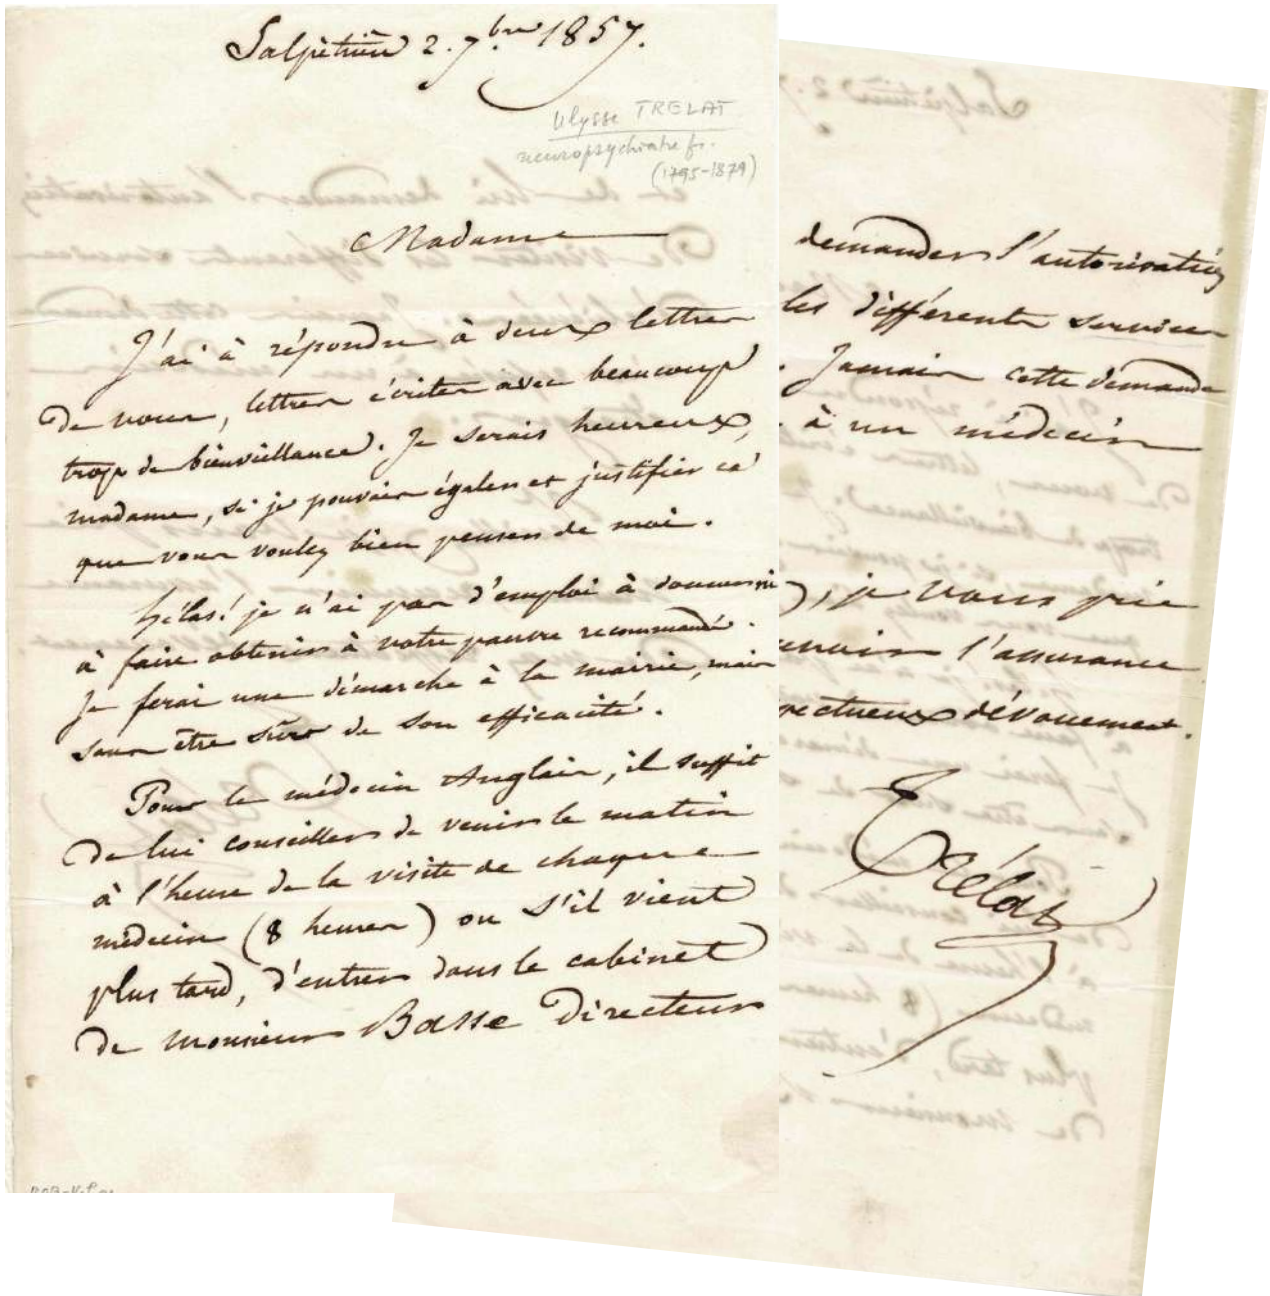 Salpêtrière 2. 7.bre 1857.
Ulysse TRELAT
neuropsychiatre fr.
(1795-1879)
Madame
J'ai à répondre à deux lettres
de vous, lettres écrites avec beaucoup
trop de bienveillance. Je serais heureux,
madame, si je pouvais égaler et justifier ce
que vous voulez bien penser de moi.
hélas! je n'ai pas d'emploi à donner ni
à faire obtenir à votre pauvre recommandé.
Je ferai une démarche à la mairie, mais
sans être sûr de son efficacité.
Pour le médecin Anglais, il suffit
de lui conseiller de venir le matin
à l'heure de la visite de chaque
médecin (8 heures) ou s'il vient
plus tard, d'entrer dans le cabinet
de monsieur Basse Directeur
demander l'autorisation
les différents services
. Jamais cette demande
à un médecin
, je vous prie
l'assurance
dévouement.
Trélat